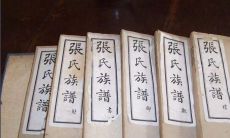 張氏族譜
張氏族譜
張氏族譜
張氏族譜
張氏族譜
張氏族譜